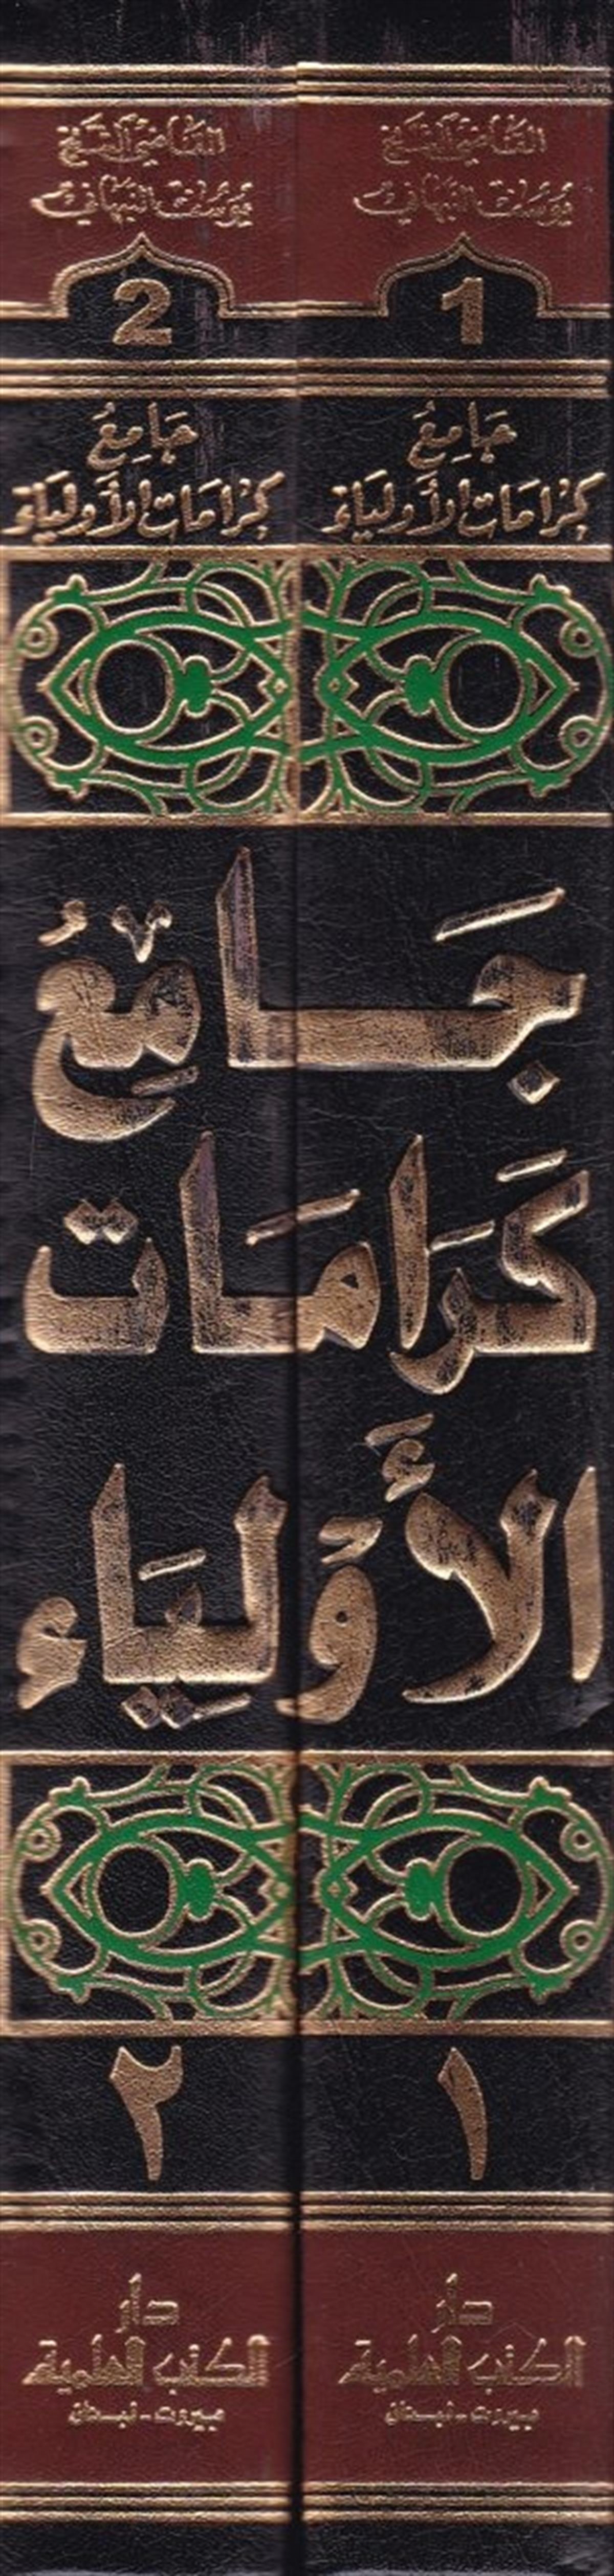 القاضي الشيخ
يوسف النبهاني
1
جَامِعُ
كَرَامَات الأَولِيَاء
القاضي الشيخ
يوسف النبهاني
2
جَامِعُ
كَرَامَات الأَولِيَاء
جَامِعُ
كَرَامَات
الأَوْلِيَاء
١
دار
الكتب العلمية
بيروت - لبنان
٢
دار
الكتب العلمية
بيروت - لبنان